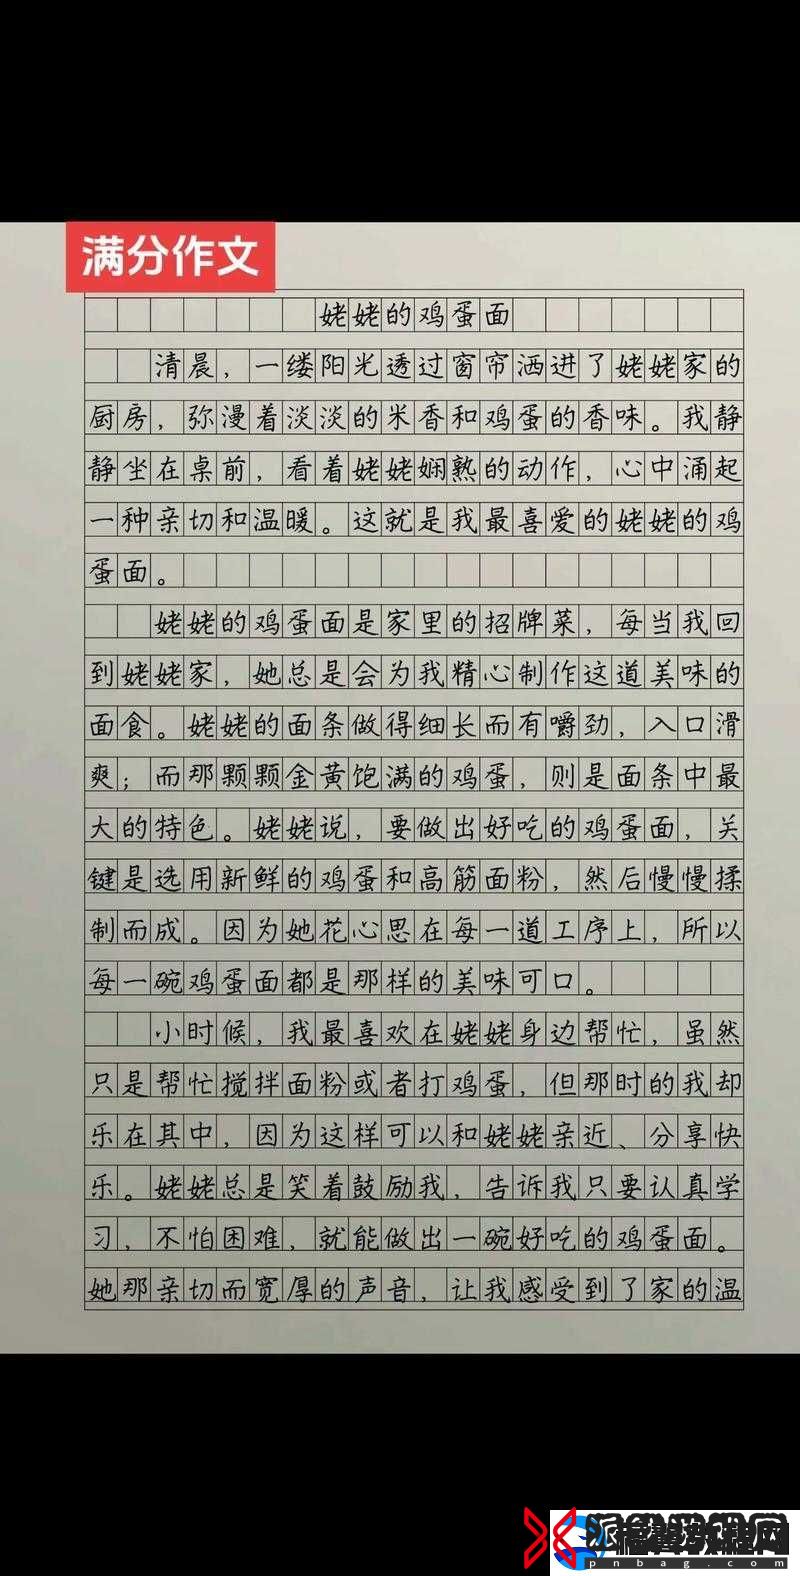 满分作文
姥姥的鸡蛋面
清晨，一缕阳光透过窗帘洒进了姥姥家的
厨房，弥漫着淡淡的米香和鸡蛋的香味。我静
静坐在桌前，看着姥姥娴熟的动作，心中涌起
一种亲切和温暖。这就是我最喜爱的姥姥的鸡
蛋面。
姥姥的鸡蛋面是家里的招牌菜，每当我回
到姥姥家，她总是会为我精心制作这道美味的
面食。姥姥的面条做得细长而有嚼劲，入口滑
爽；而那颗颗金黄饱满的鸡蛋，则是面条中最
大的特色。姥姥说，要做出好吃的鸡蛋面，关
键是选用新鲜的鸡蛋和高筋面粉，然后慢慢揉
制而成。因为她花心思在每一道工序上，所以
每一碗鸡蛋面都是那样的美味可口。
小时候，我最喜欢在姥姥身边帮忙，虽然
只是帮忙搅拌面粉或者打鸡蛋，但那时的我却
乐在其中，因为这样可以和姥姥亲近、分享快
乐。姥姥总是笑着鼓励我，告诉我只要认真学
习，不怕困难，就能做出一碗好吃的鸡蛋面。
她那亲切而宽厚的声音，让我感受到了家的温
pnbag.com